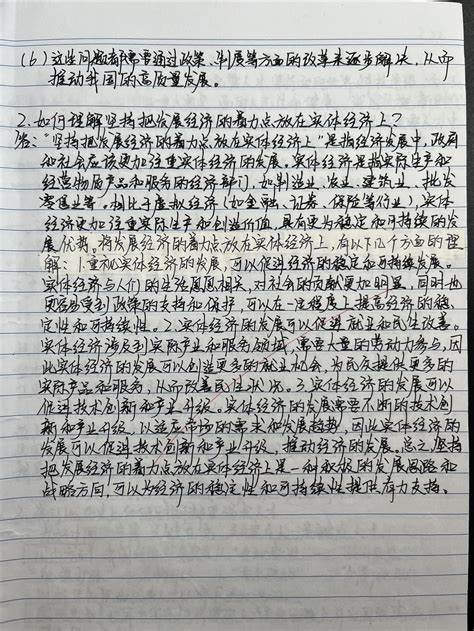 (6) 这些问题都需要通过政策、制度等方面的改革来逐步解决，从而
推动我国的高质量发展。
2.如何理解坚持把发展经济的着力点放在实体经济上？
答：“坚持把发展经济的着力点放在实体经济上”是指经济发展中，政府
和社会应该更加注重实体经济的发展。实体经济是指实际生产和
经营物质产品和服务的经济部门，如制造业、农业、建筑业、批发
零售业等。相比于虚拟经济（如金融、证券、保险等行业），实体
经济更加注重实际生产和创造价值，具有更为稳定和可持续的发
展优势。将发展经济的着力点放在实体经济上，有以下几个方面的理
解：1.重视实体经济的发展，可以促进经济的稳定和可持续发展。
实体经济与人们的生活息息相关，对社会的贡献更加明显，同时也
更容易受到政策的支持和保护，可以在一定程度上提高经济的稳
定性和可持续性。2.实体经济的发展可以促进就业和民生改善。
实体经济涉及到实际产业和服务领域，需要大量的劳动力参与，因
此实体经济的发展可以创造更多的就业机会，为民众提供更多的
实际产品和服务，从而改善民生状况。3.实体经济的发展可以
促进技术创新和产业升级。实体经济的发展需要不断的技术创
新和产业升级，以适应市场的需求和发展趋势，因此实体经济的
发展可以促进技术创新和产业升级，推动经济的发展。总之，坚持
把发展经济的着力点放在实体经济上是一种积极的发展思路和
战略方向，可以为经济的稳定性和可持续性提供有力支持。